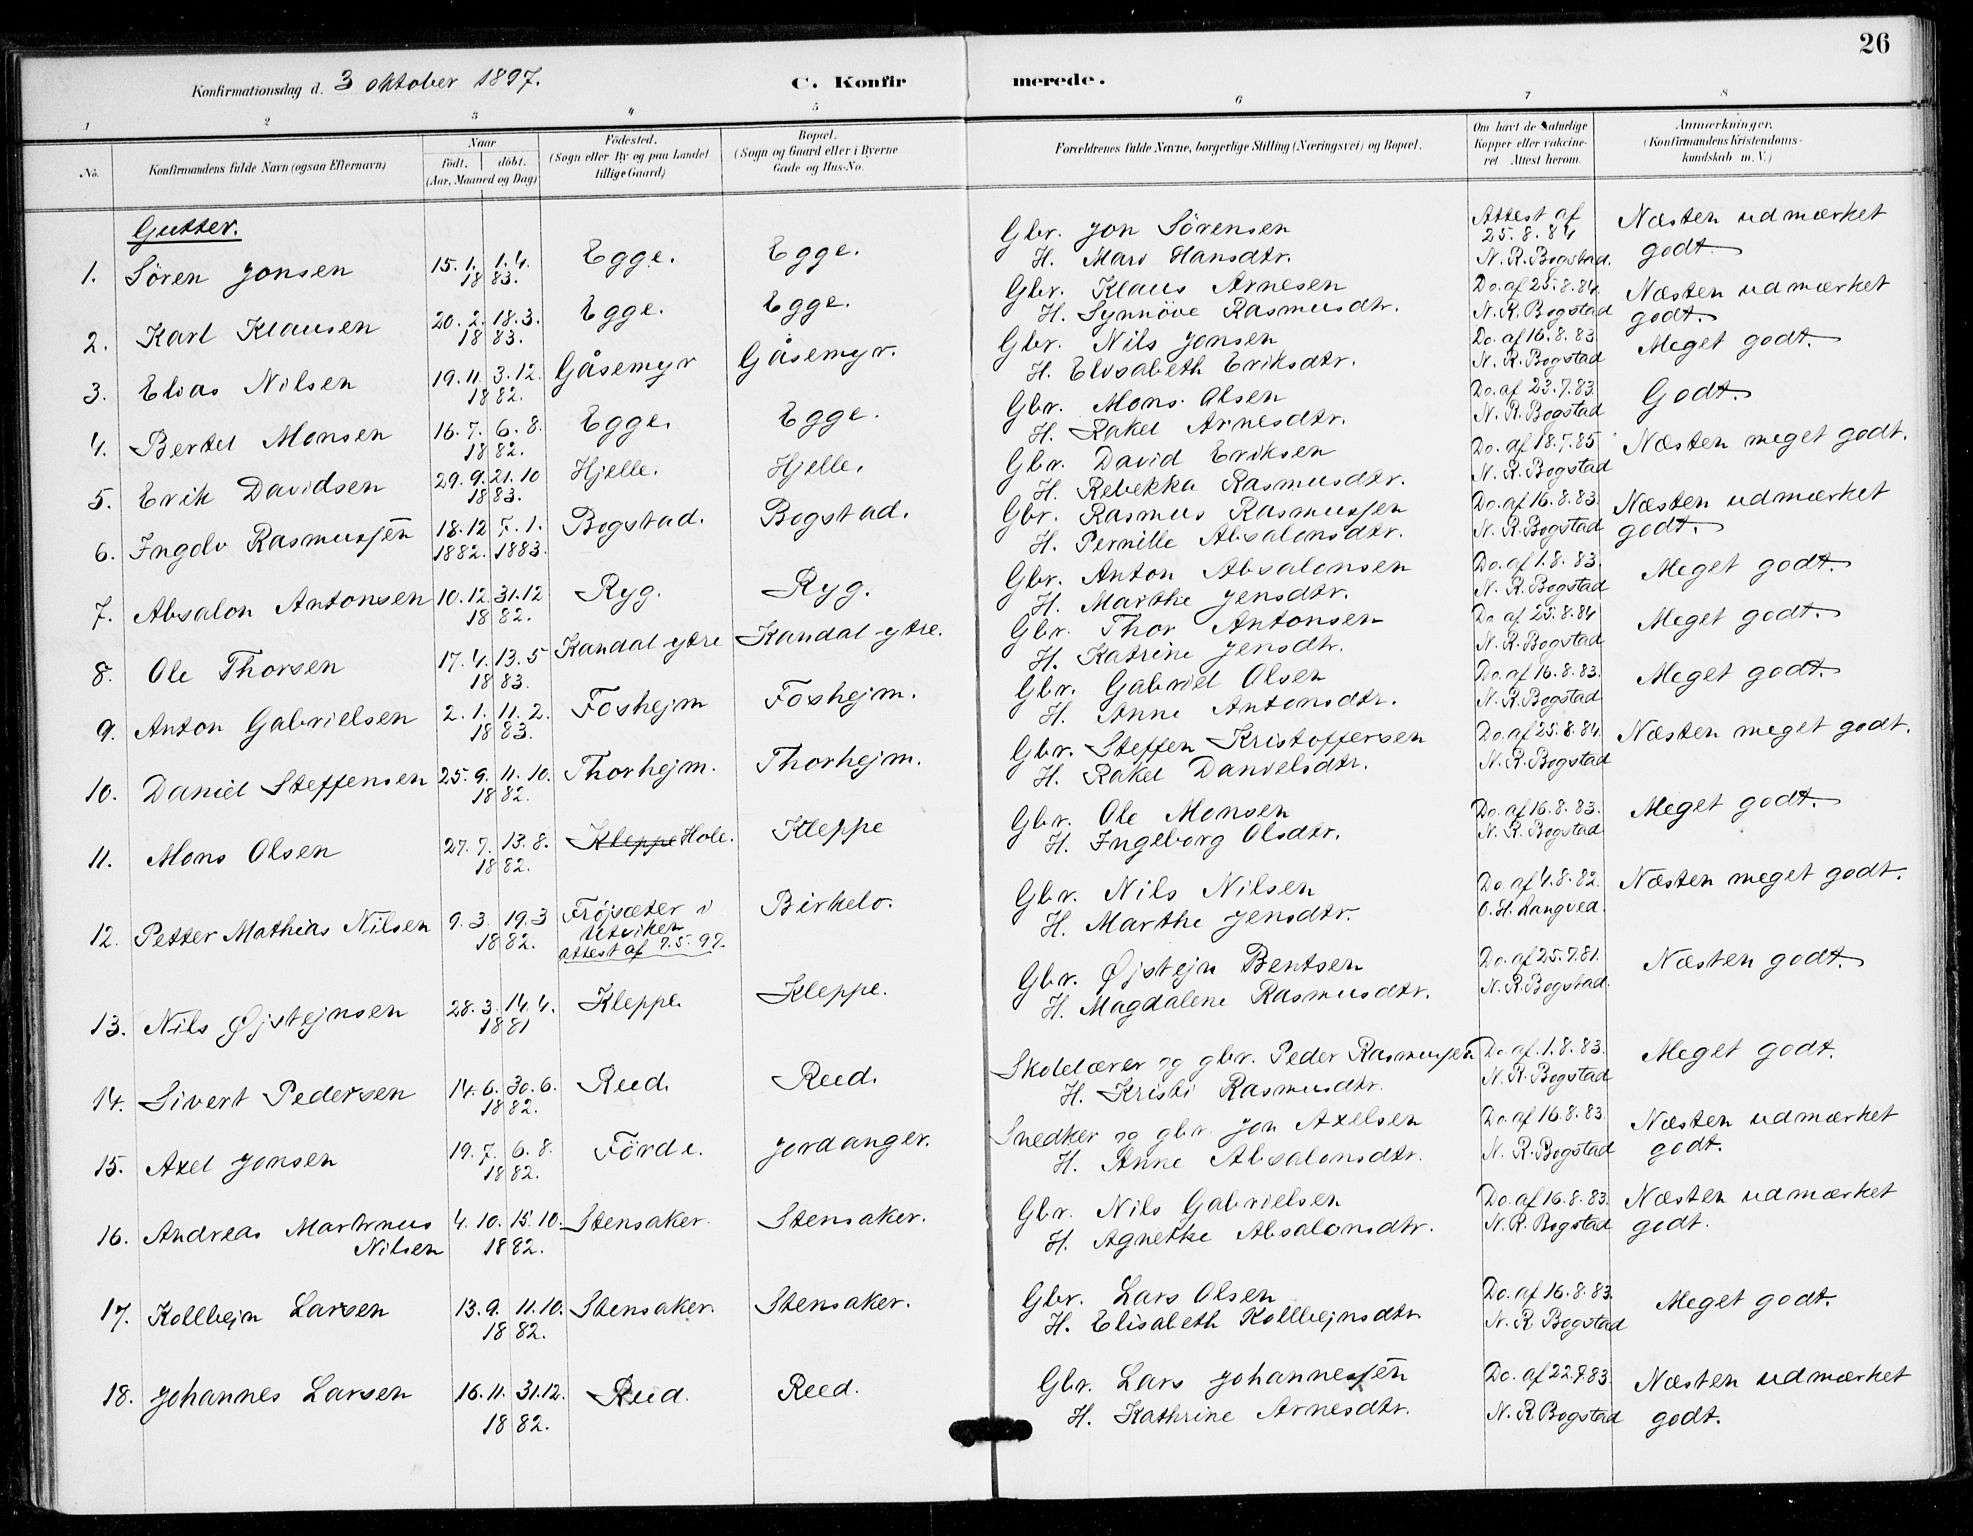 26
Konfirmationsdag d. 3 oktober 1897. C. Konfir merede.
1 2 3 4 5 6 7 8
No. Konfirmandens fulde Navn (ogsaa Efternavn) Naar født. døbt. (Aar, Maaned og Dag) Fødested. (Sogn eller By og paa Landet tillige Gaard) Bopæl. (Sogn og Gaard eller i Byerne Gade og Hus-No. Forældrenes fulde Navne, borgerlige Stilling (Næringsvei) og Bopæl. Om havt de naturlige Kopper eller vaccineret Attest herom. Anmærkninger. (Konfirmandens Kristendomskundskab m. V.)
Gutter.
1. Søren Jonsen 15. 1. 1. 4. 1883. Egge. Egge. Gbr. Jon Sørensen Attest af 25. 8. 84 Næsten udmærket
H. Mari Hansdtr. N. R. Bogstad. godt.
2. Karl Klausen 20. 2. 18. 3. 1883. Egge. Egge. Gbr. Klaus Arnesen Do. af 25. 8. 84. Næsten udmærket
H. Synnöve Rasmusdtr. N. R. Bogstad godt.
3. Elias Nilsen 19. 11. 3. 12. 1882. Gåsemyr Gåsemyr. Gbr. Nils Jonsen Do. af 16. 8. 83 Meget godt.
H. Elisabeth Eriksdtr. N. R. Bogstad
4. Bertel Monsen 16. 7. 6. 8. 1882. Egge. Egge. Gbr. Mons Olsen Do. af 23. 7. 83. Godt.
H. Rakel Arnesdtr. N. R. Bogstad
5. Erik Davidsen 29. 9. 21. 10 1883. Hjelle. Hjelle. Gbr. David Eriksen Do. af 18. 7. 85 Næsten meget godt.
H. Rebekka Rasmusdtr. N. R. Bogstad
6. Ingolv Rasmussen 18. 12 1882. 7. 1. 1883. Bogstad. Bogstad. Gbr. Rasmus Rasmussen Do. af 16. 8. 83. Næsten udmærket
H. Pernille Absalonsdtr. N. R. Bogstad godt.
7. Absalon Antonsen 10. 12. 31. 12 1882. Ryg. Ryg. Gbr. Anton Absalonsen Do. af 1. 8. 83. Meget godt.
H. Marthe Jensdtr. N. R. Bogstad
8. Ole Thorsen 17. 4. 13. 5 1883. Kandal ytre Kandal ytre. Gbr. Thor Antonsen Do af 25. 8. 84 Meget godt.
H. Katrine Jensdtr. N. R. Bogstad
9. Anton Gabrielsen 2. 1. 11. 2. 1883. Foshejm Foshejm. Gbr. Gabriel Olsen Do. af 16. 8. 83. Meget godt.
H. Anne Antonsdtr. N. R. Bogstad
10. Daniel Steffensen 25. 9. 11. 10. 1882. Thorhejm. Thorhejm. Gbr. Steffen Kristoffersen Do. af 25. 8. 84. Næsten meget godt.
H. Rakel Danielsdtr. N. R. Bogstad
11. Mons Olsen 27. 7. 13. 8. 1882. Kleppe Hole. Kleppe Gbr. Ole Monsen Do. af 16. 8. 83. Meget godt.
H. Ingeborg Olsdtr. N. R. Bogstad
12. Petter Mathias Nilsen 9. 3. 19. 3 1882. Frøjsæter i Utviken attest af 7. 5. 97. Birkelo. Gbr. Nils Nilsen Do. af 4. 8. 82. Næsten meget godt.
H. Marthe Jensdtr. O. H. Langved.
13. Nils Øjstejnsen 28. 3. 14. 4. 1881 Kleppe. Kleppe. Gbr. Øjstejn Bentsen Do. af 25. 7. 81. Næsten godt.
H. Magdalene Rasmusdtr. N. R. Bogstad.
14. Sivert Pedersen 14. 6. 30. 6. 1882. Reed. Reed. Skolelærer og gbr. Peder Rasmussen Do. af 1. 8. 83. Meget godt.
H. Kristi Rasmusdtr. N. R. Bogstad
15. Axel Jonsen 19. 7. 6. 8. 1882. Førde. Jordanger. Snedker og gbr. Jon Axelsen Do. af 16. 8. 83. Næsten udmærket
H. Anne Absalonsdtr. N. R. Bogstad godt.
16. Andreas Martinus Nilsen 4. 10. 15. 10. 1882. Stensaker. Stensaker. Gbr. Nils Gabrielsen Do. af 16. 8. 83. Næsten udmærket
H. Agnethe Absalonsdtr. N. R. Bogstad godt.
17. Kolbejn Larsen 13. 9. 11. 10. 1882. Stensaker. Stensaker. Gbr. Lars Olsen Do. af 16. 8. 83. Meget godt.
H. Elisabeth Kolbejnsdtr. N. R Bogstad
18. Johannes Larsen 16. 11. 31. 12. 1882. Reed. Reed. Gbr. Lars Johannessen Do. af 22. 7. 83. Næsten udmærket
H. Kathrine Arnesdtr. N. R Bogstad godt.